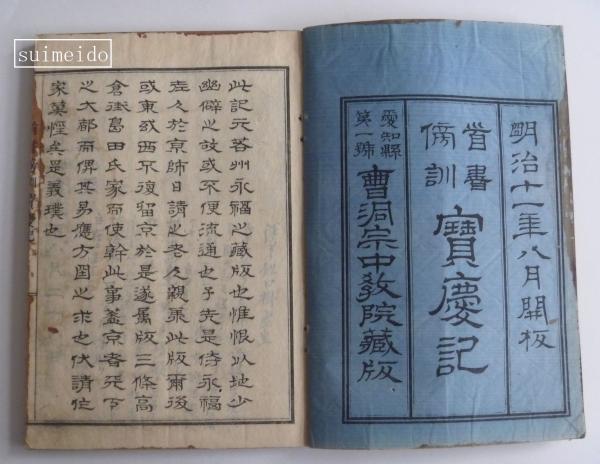 suimeido
明治十一年八月開板
首書
傍訓
寶慶記
愛知縣
第一號
曹洞宗中教院藏版
此記元若州永福之藏版也惟恨以地少
幽僻之故或不便流通也予先是侍永福
老人於京師日請之老人親此版爾後
或東或西不復留京於是遂属版三條高
倉街島田氏家而使幹此事蓋京者天下
之大都而俾其易應方国之求也伏請位
家莫怪矣是義璞也